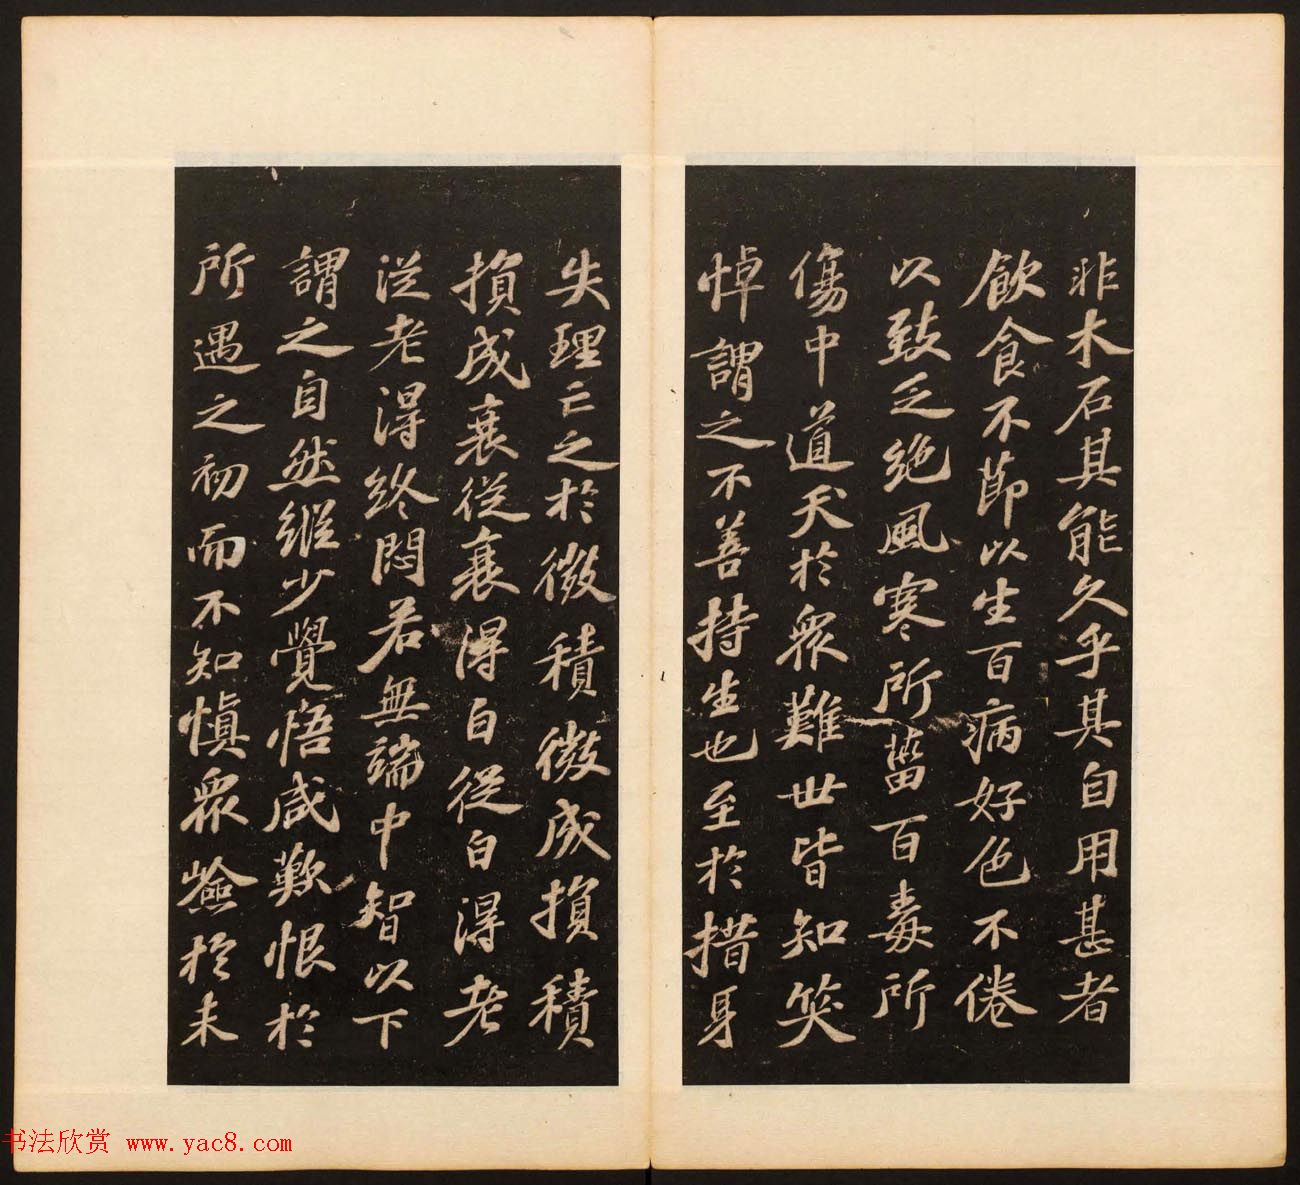 非木石其能久乎其自用甚者
飲食不節以生百病好色不倦
以致乏絶風寒所菑百毒所
傷中道夭於衆難世皆知笑
悼謂之不善持生也至於措身
失理亡之於微積微成損積
損成衰從衰得白從白得老
從老得終悶若無端中智以下
謂之自然縱少覺悟咸歎恨於
所遇之初而不知慎衆嶮於未
书法欣赏 www.yac8.com